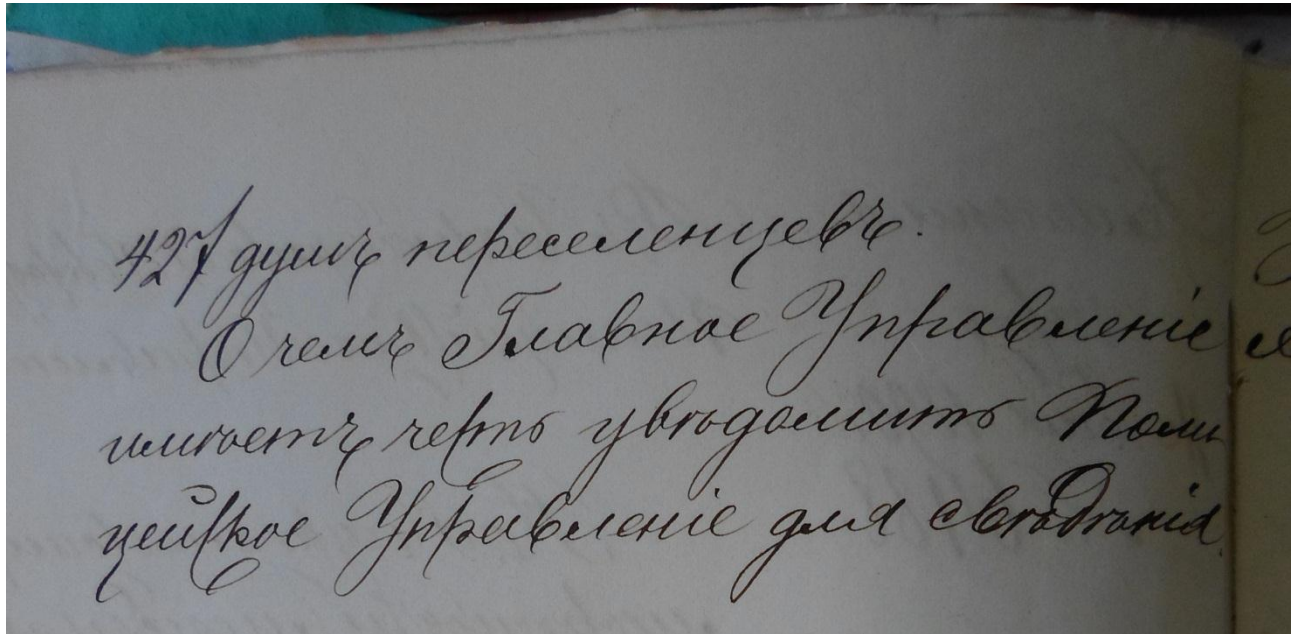 427 душъ переселенцевъ.
О чемъ Главное Управленіе
имѣетъ честь увѣдомить Поли
цейское Управленіе для свѣдѣнія.